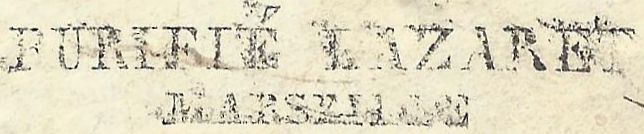 PURIFIÉ LAZARET
MARSEILLE